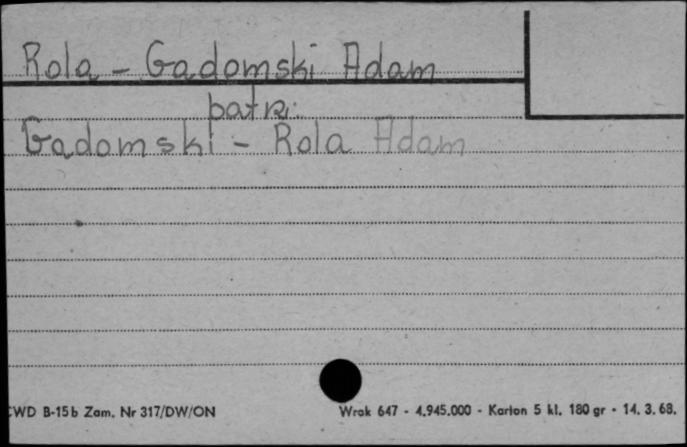 Rola - Gadomski Adam
patrz:
Gadomski - Rola Adam
CWD B-15b Zam. Nr 317/DW/ON
Wrak 647 - 4.945.000 - Karton 5 kl. 180 gr - 14. 3. 68.